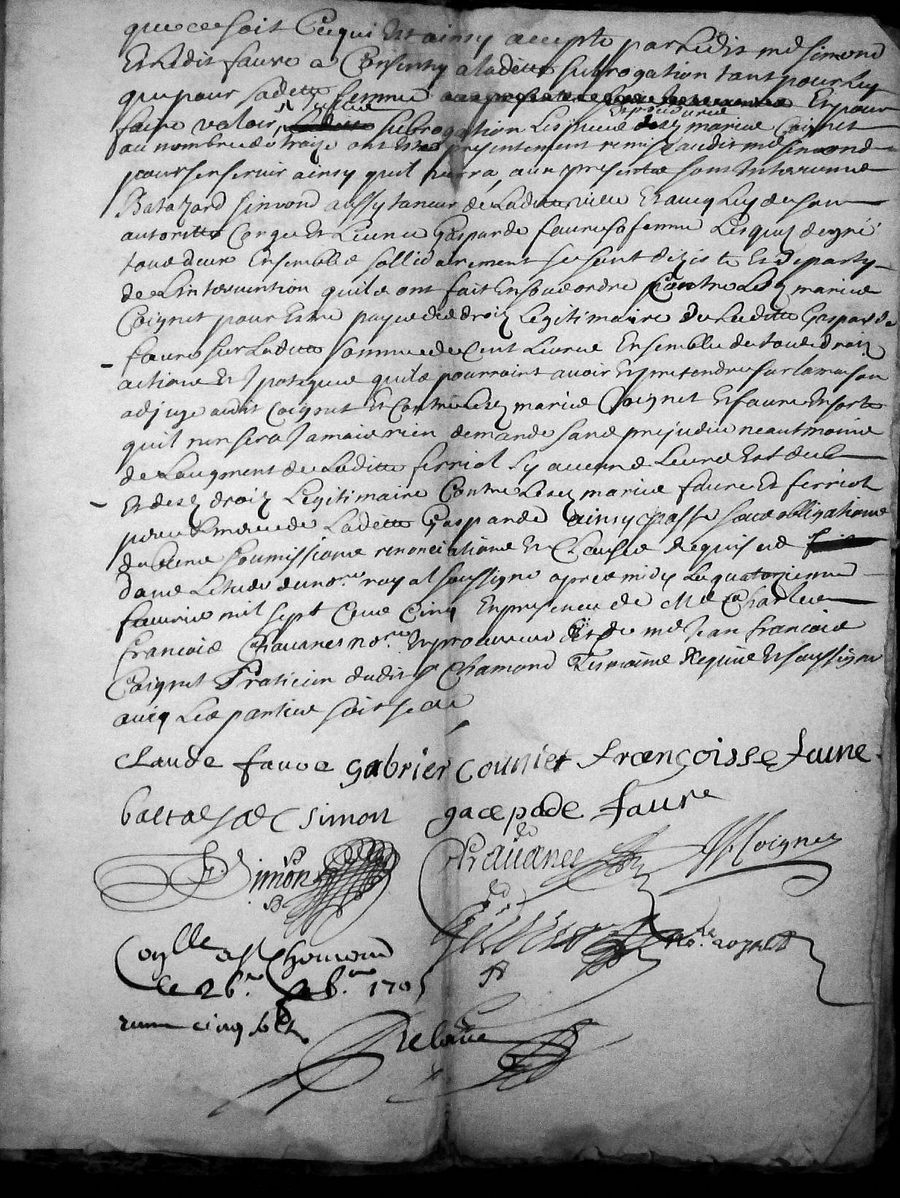 que ce soit Ce qui Est ainsy accepte par Ledit md simond
Et Ledit faure a Consenty a ladette subrogation tant pour Luy
que pour sadette femme Et pour
faire valoir subrogation Les mariee Coignet
au nombre de traize ont estes presentement remis audit md simond
pour sen servir ainsy quil verra, aux presentes sont Intervenue
Batazard simond aussy taneur de Ladite ville Et avecq Luy de son
autoritte Conge Et Licence Gasparde faure sa femme Lesquez de gré
tous deux Ensemble sollidairement se sont dezis te Et departy
de Lintervention quile ont fait En soude ordre Contre Lesd mariee
Coignet pour Estre payee des droiz Legitimaire de Laditte Gasparde
faure sur Laditte somme de Cent Livres Ensemble de tous droiz
actions Et ypoteques quile pourroint avoir Et pretendre sur la maison
adjuge audit Coignet Et Contre Lesd mariee Coignet Et faure En sorte
quil nen sera Jamais rien demande sans prejudice neantmoins
de Laugment de Laditte ferriol sy aucune Leure Est deub
Et desd droiz Legitimaire Contre Lesd mariee faure Et ferriol
pere Et mere de Ladette Gasparde ainsy passé sous obligations
de biens soumissions renonciations Et Clauses Requises
dans Letude du no.re royal soussigne apres midy Le quatorzieme
favrie mil sept Cens Cinq En presence de Me Charles
francois Chavanes no.re Et procureur Et de md Jean francois
Coignet Praticien dudit St Chamond Tesmoins Requis Et soussigne
avecq Les parties
claude faure gabrier Couniet françoisse faure
baltasard simon gaspade faure
Simon Chavanes Coignet
no.re royal
Conlle a St Chomond
le 26.me feb.r 1705
cinq sols